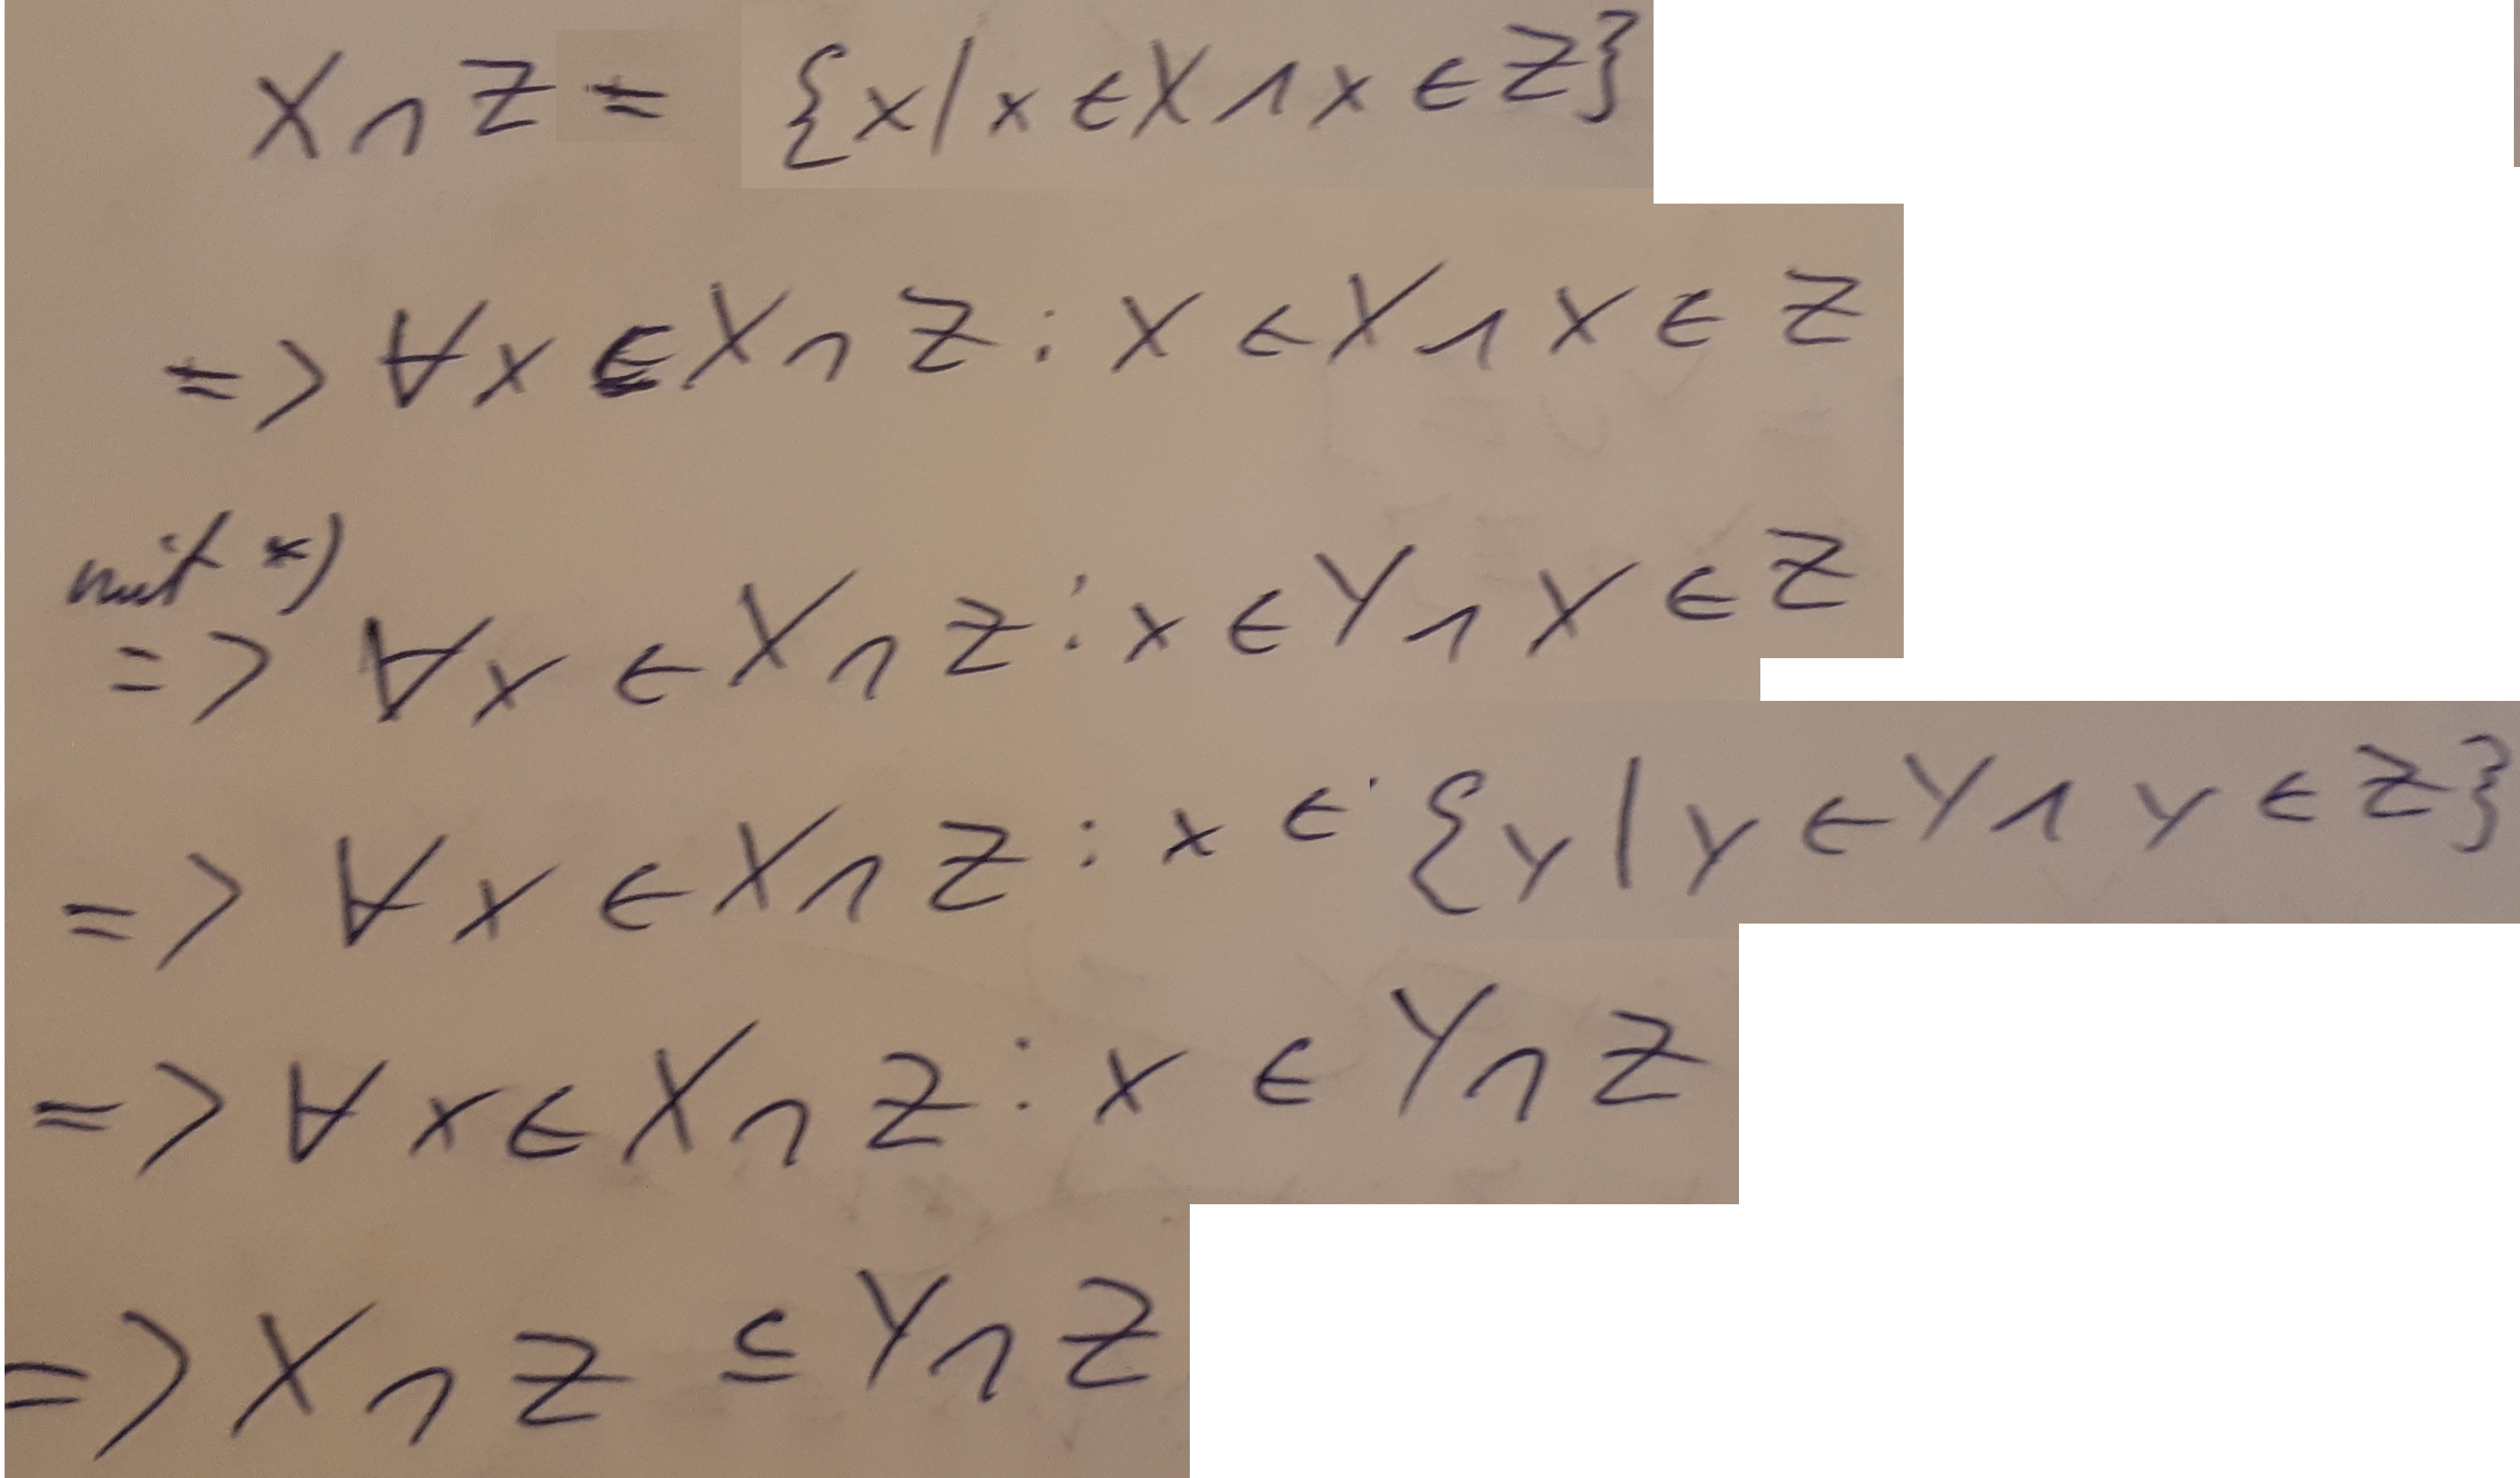 X ∩ Z = {x | x ∈ X ∧ x ∈ Z}
=> ∀x ∈ X ∩ Z : x ∈ X ∧ x ∈ Z
mit *)
=> ∀x ∈ X ∩ Z : x ∈ Y ∧ x ∈ Z
=> ∀x ∈ X ∩ Z : x ∈ {y | y ∈ Y ∧ y ∈ Z}
=> ∀x ∈ X ∩ Z : x ∈ Y ∩ Z
=> X ∩ Z ⊆ Y ∩ Z